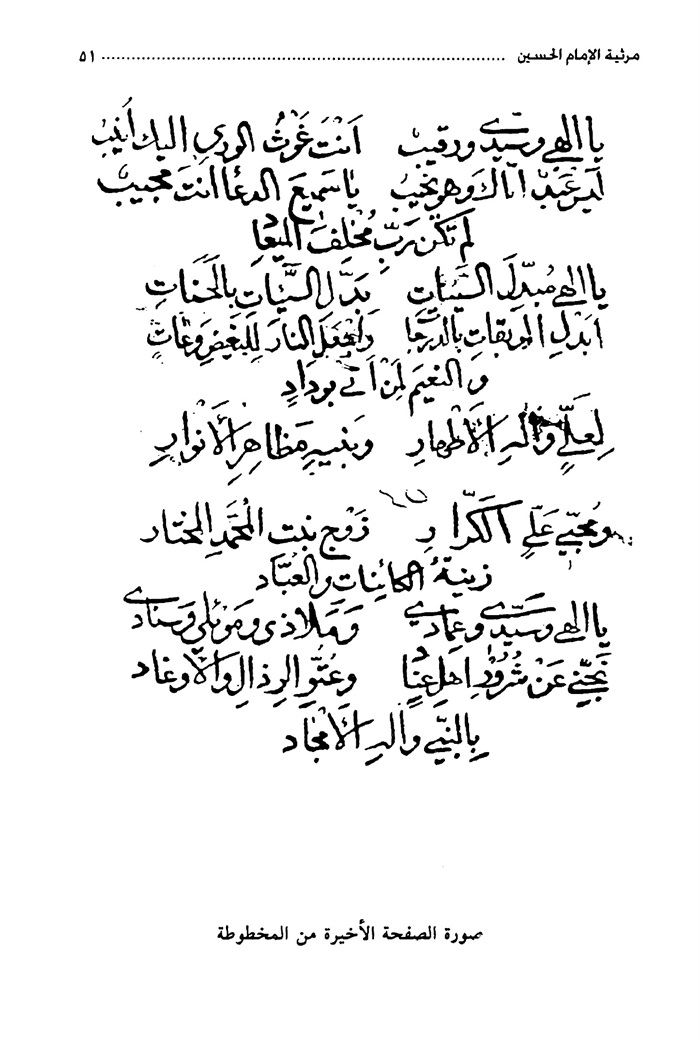 مرثية الإمام الحسين ........ ٥١
يا الهي وسيدي ورقيب انت غوث الورى اليك انيب
عبد اتاك وهو نجيب يا سميع الدعا انت مجيب
لم تكن رب مخلف الميعاد
يا الهي مبدل السيئات بدل السيئات بالحسنات
ابدل الموبقات بالدرجات واجعل النار للبغيض وعات
والنعيم لمن اتى بوداد
لعلي وآله الأطهار وبنيه مظاهر الأنوار
ومحبي علي الكرار زوج بنت المحمد المختار
زينة الكائنات والعباد
يا الهي وسيدي وعمادي وملاذي وموئلي وسنادي
نجني عن شرور اهل عناد وعتو الرذال والأوغاد
بالنبي وآله الأمجاد
صورة الصفحة الأخيرة من المخطوطة